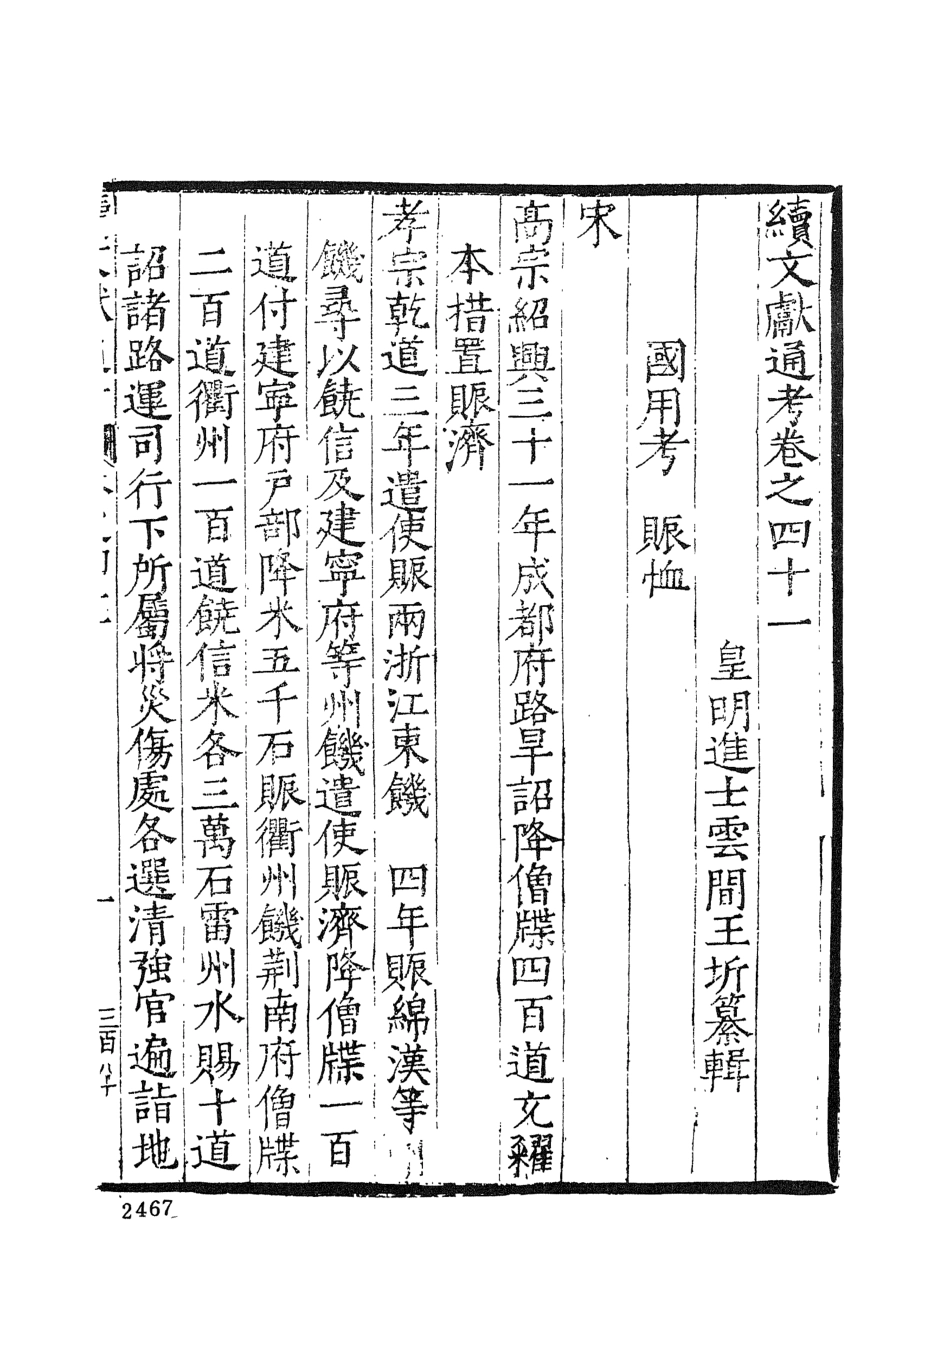 續文獻通考卷之四十一
皇明進士雲間王圻纂輯
國用考　賑恤
宋
高宗紹興三十一年成都府路旱詔降僧牒四百道文糴
本措置賑濟
孝宗乾道三年遣使賑兩浙江東饑　四年賑綿漢等州
饑尋以饒信及建寧府等州饑遣使賑濟降僧牒一百
道付建寧府戶部降米五千石賑衢州饑荆南府僧牒
二百道衢州一百道饒信米各三萬石雷州水賜十道
詔諸路運司行下所屬將災傷處各選清強官遍詣地
一
2467